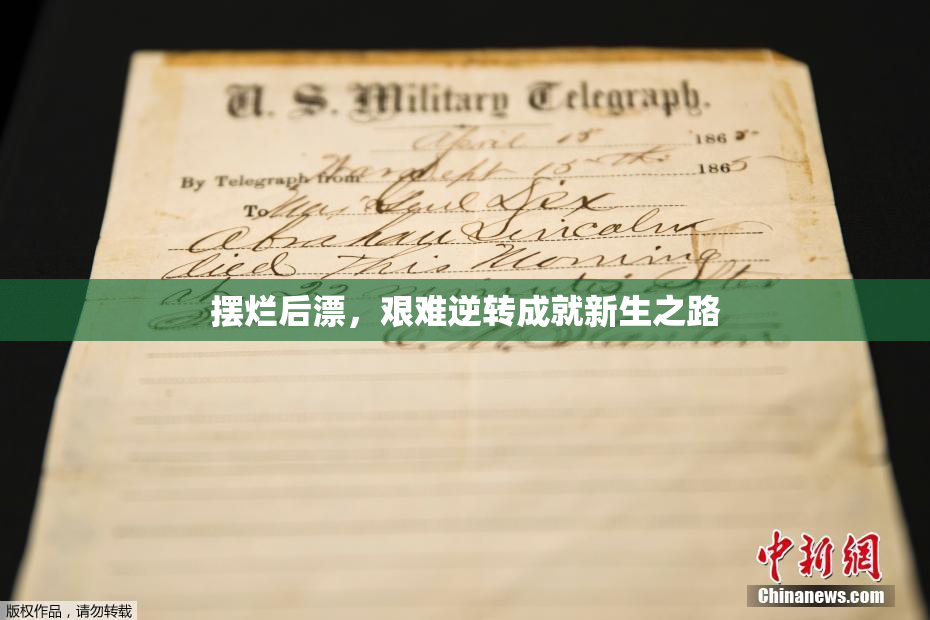 U. S. Military Telegraph.
April 15 1865
By Telegraph from War Dept 15th 1865
To Maj Genl Dix
Abraham Lincoln
died This Morning
at 22 minutes after
摆烂后漂，艰难逆转成就新生之路
中新網
Chinanews.com
版权作品，请勿转载